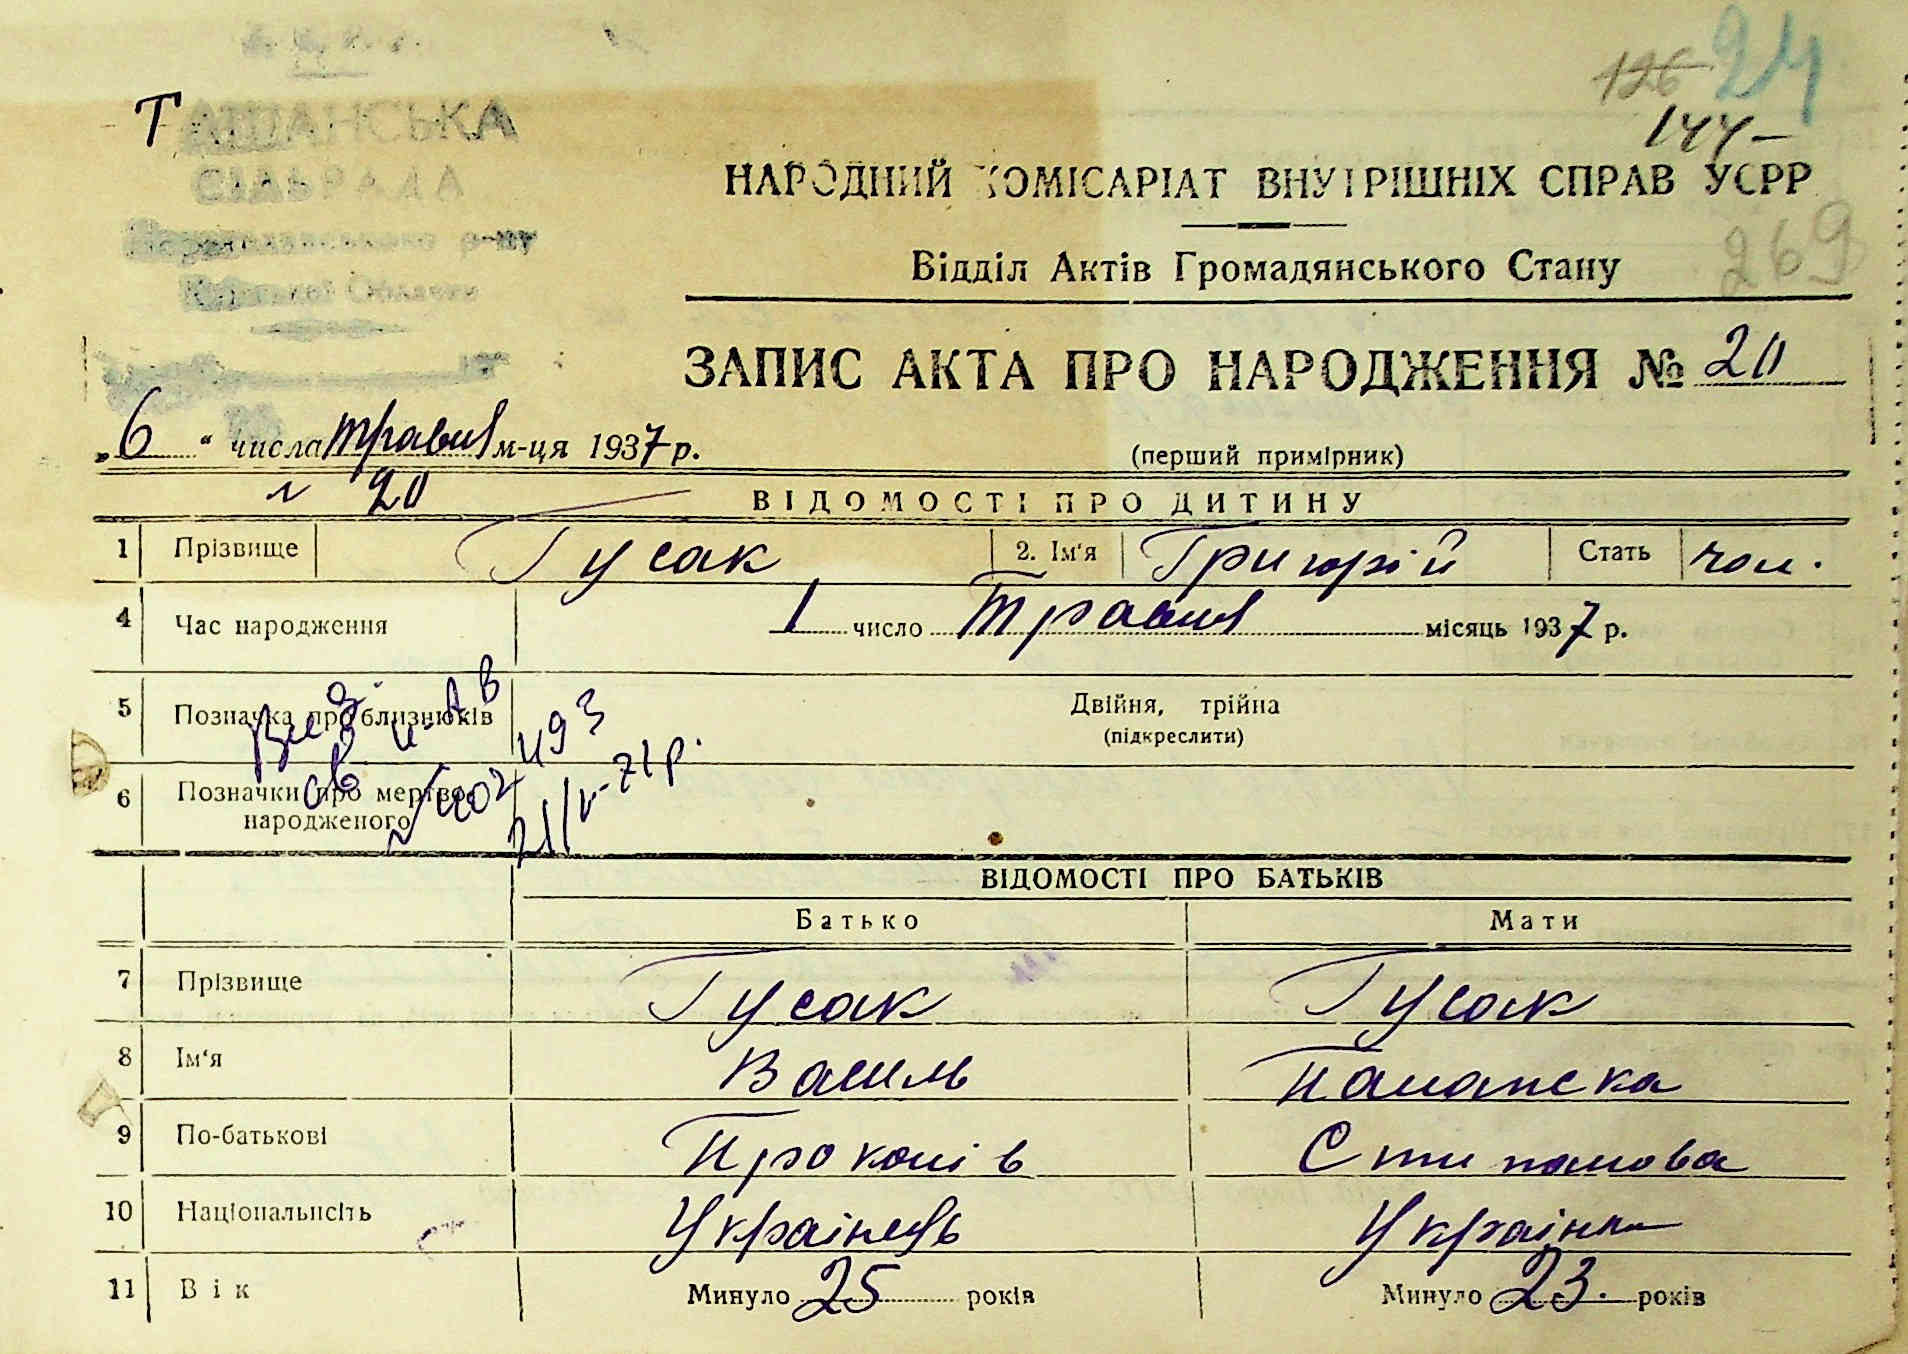 126 24
144-
Т АШАНСЬКА
СІЛЬРАДА
р-ну
Київської Области
НАРОДНИЙ КОМІСАРІАТ ВНУТРІШНІХ СПРАВ УСРР
269
Відділ Актів Громадянського Стану
ЗАПИС АКТА ПРО НАРОДЖЕННЯ № 20
„6“ числа травня м-ця 1937 р.
(перший примірник)
20
ВІДОМОСТІ ПРО ДИТИНУ
1 Прізвище Гусак 2. Ім'я Григорій Стать чол.
4 Час народження 1 число Травня місяць 1937 р.
5 Позначка про близнюків Двійня, трійна
(підкреслити)
6 Позначки про мертво-
народженого
ВІДОМОСТІ ПРО БАТЬКІВ
Батько Мати
7 Прізвище Гусак Гусак
8 Ім'я Василь Палажка
9 По-батькові Прокопів Степанова
10 Національність Українець Українка
11 Вік Минуло 25 років Минуло 23. років